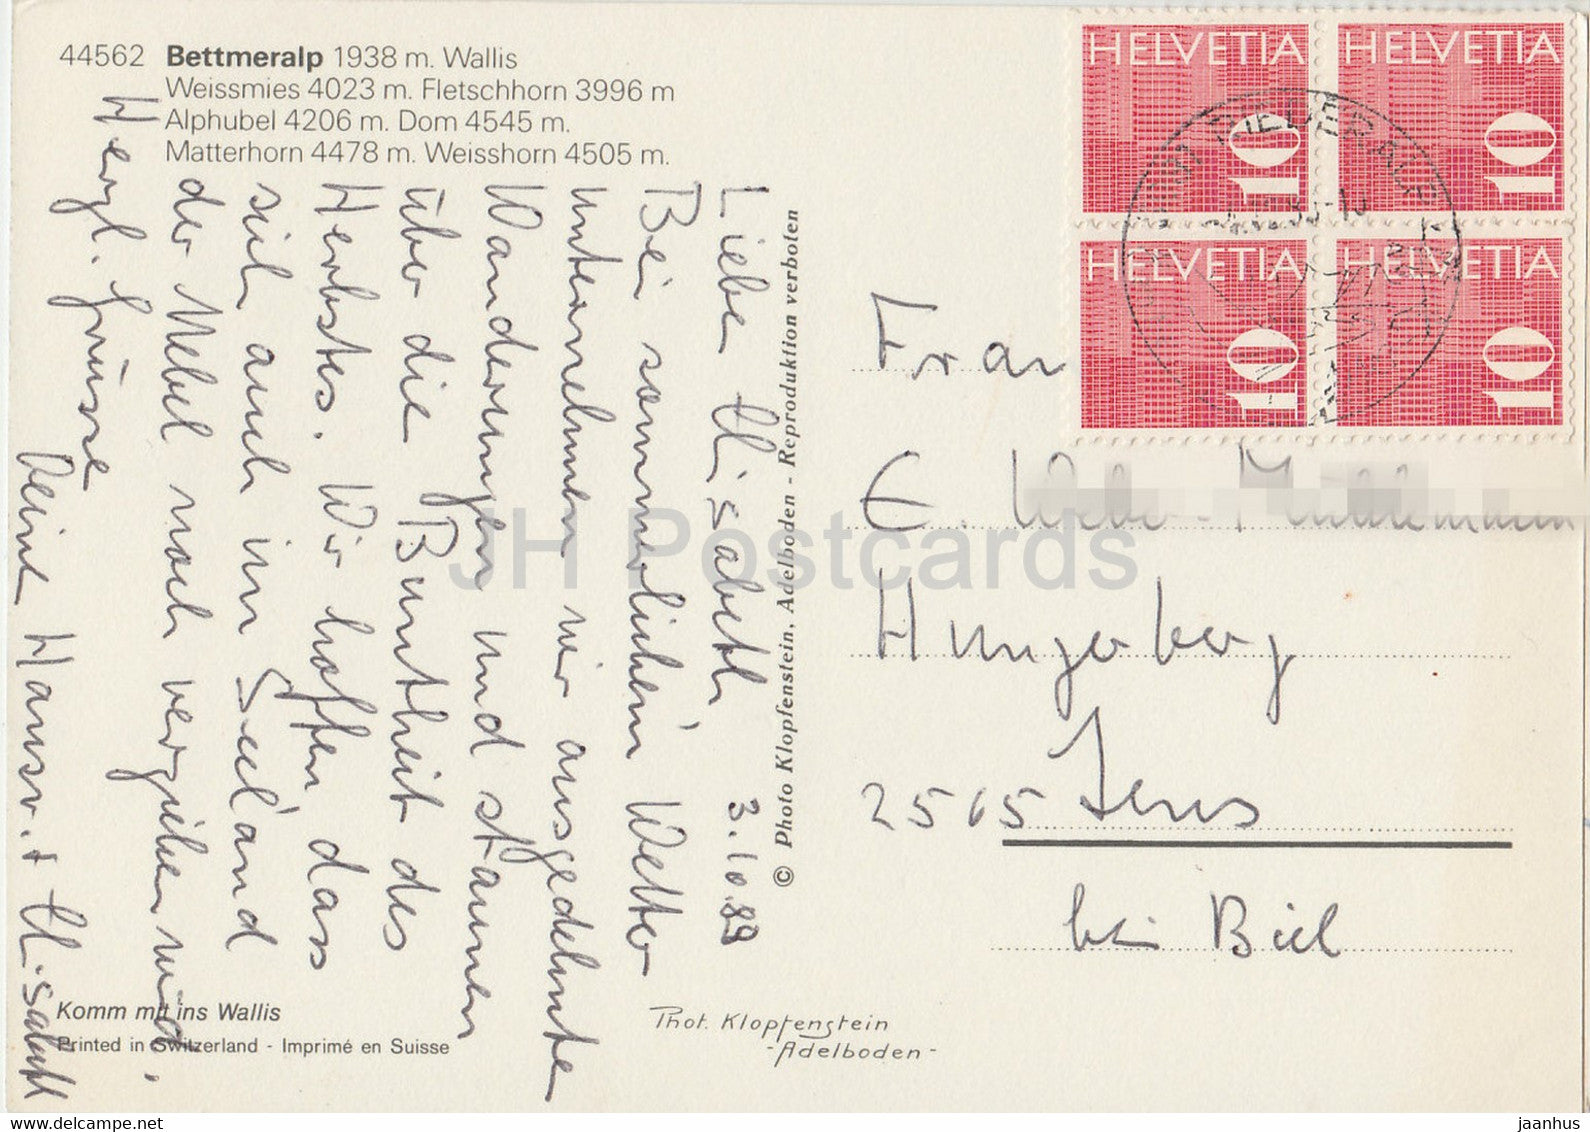 44562 Bettmeralp 1938 m. Wallis
Weissmies 4023 m. Fletschhorn 3996 m
Alphubel 4206 m. Dom 4545 m.
Matterhorn 4478 m. Weisshorn 4505 m.
3.10.89
Liebe Elisabeth,
Bei sommerlichem Wetter
unternehmen wir ausgedehnte
Wanderungen und staunen
über die Buntheit des
Herbstes. Wir hoffen, dass
sich auch im Seeland
der Nebel noch verziehen wird.
Herzl. Grüsse
Deine Hansr. + Elisabeth
Komm mit ins Wallis
Printed in Switzerland - Imprimé en Suisse
© Photo Klopfenstein, Adelboden - Reproduktion verboten
Phot. Klopfenstein
- Adelboden -
HELVETIA 10
HELVETIA 10
HELVETIA 10
HELVETIA 10
RIEDERALP
Frau
E.
Hungerberg
2565 Jens
bei Biel
JH Postcards
www.delcampe.net
jaanhus